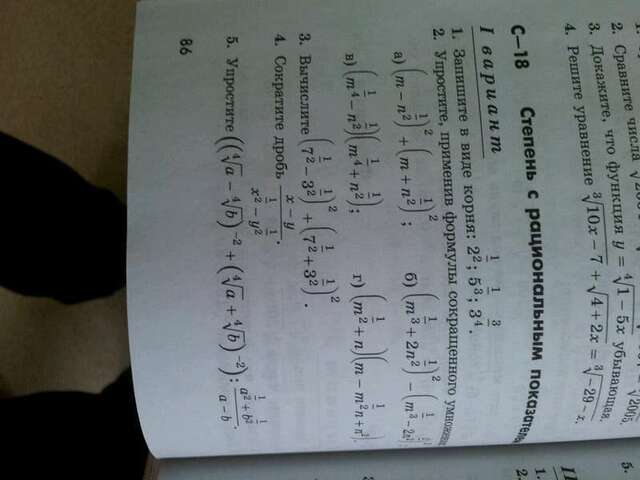 2. Сравните числа
3. Докажите, что функция y = ∜(1 − 5x) убывающая.
4. Решите уравнение ∛(10x − 7) + √(4 + 2x) = ∛(−29 − x).
С—18 Степень с рациональным показателем
I вариант
1. Запишите в виде корня: 2^(1/2); 5^(1/3); 3^(3/4).
2. Упростите, применив формулы сокращенного умножения
а) (m − n^(1/2))^2 + (m + n^(1/2))^2;
б) (m^(1/3) + 2n^(1/2))^2 − (m^(1/3) − 2n^(1/2))^2
в) (m^(1/4) − n^(1/2))(m^(1/4) + n^(1/2));
г) (m^(1/2) + n)(m − m^(1/2)n + n^2).
3. Вычислите (7^(1/2) − 3^(1/2))^2 + (7^(1/2) + 3^(1/2))^2.
4. Сократите дробь (x − y)/(x^(1/2) − y^(1/2)).
5. Упростите ((∜a − ∜b)^(−2) + (∜a + ∜b)^(−2)) : (a^(1/2) + b^(1/2))/(a − b).
86